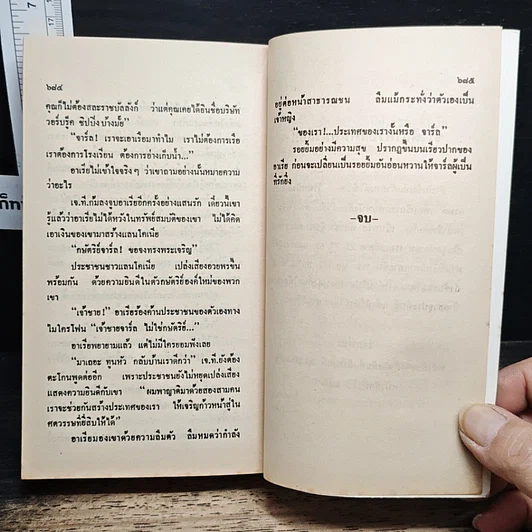 ๖๘๔
คุณก็ไม่ต้องสละราชบัลลังก์ ว่าแต่คุณเคยได้ยินชื่อบริษัท
วอร์บรู๊ค ชิปปิ้งบ้างมั้ย”
“จาร์ล! เราจะเอาเรือมาทำไม เราไม่ต้องการเรือ
เราต้องการโรงเรียน ต้องการอ่างเก็บน้ำ...”
อาเรียไม่เข้าใจจริงๆ ว่าเขาถามอย่างนั้นหมายความ
ว่าอะไร
เจ.ที.ก้มลงจูบอาเรียอีกครั้งอย่างแสนรัก เดี๋ยวนี้เขา
รู้แล้วว่าอาเรียไม่ได้หวังในทรัพย์สมบัติของเขา ไม่ได้คิด
เอาเงินของเขามาสร้างแลนโคเนีย
“กษัตริย์จาร์ล! ขอจงทรงพระเจริญ”
ประชาชนชาวแลนโคเนีย เปล่งเสียงอวยพรขึ้น
พร้อมกัน ด้วยความยินดีในตัวกษัตริย์องค์ใหม่ของพวก
เขา
“เจ้าชาย!” อาเรียร้องค้านประชาชนของตัวเองทาง
ไมโครโฟน “เจ้าชายจาร์ล ไม่ใช่กษัตริย์...”
อาเรียพยายามแล้ว แต่ไม่มีใครยอมฟังเลย
“มาเถอะ ทูนหัว กลับบ้านเราดีกว่า” เจ.ที.ยังต้อง
ตะโกนพูดต่ออีก เพราะประชาชนยังไม่หยุดเปล่งเสียง
แสดงความยินดีกับเขา “ผมพาญาติมาด้วยสองสามคน
เราจะช่วยกันสร้างประเทศของเรา ให้เจริญก้าวหน้าสู่ใน
ศตวรรษที่ยี่สิบให้ได้”
อาเรียมองเขาด้วยความลืมตัว ลืมหมดว่ากำลัง
๖๘๕
อยู่ต่อหน้าสาธารณชน ลืมแม้กระทั่งว่าตัวเองเป็น
เจ้าหญิง
“ของเรา!...ประเทศของเรางั้นหรือ จาร์ล”
รอยยิ้มอย่างมีความสุข ปรากฏขึ้นบนเรียวปากของ
อาเรีย ก่อนจะเปลี่ยนเป็นรอยยิ้มอันอ่อนหวานให้จาร์ลผู้เป็น
ที่รักยิ่ง
–จบ–